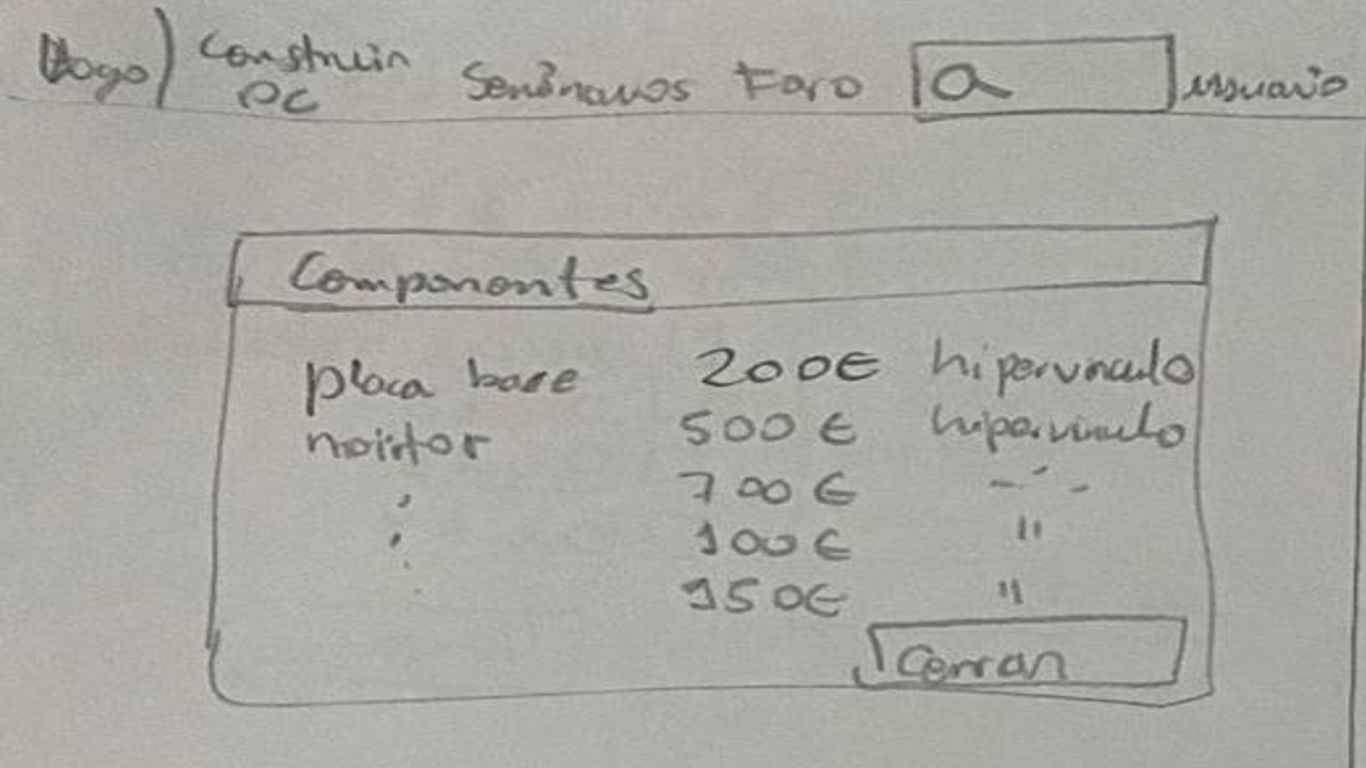 Logo Construir PC Seminarios Foro usuario
Componentes
placa base 200€ hipervinculo
moitor 500€ hipervinculo
700€ -"-
100€ "
150€ "
Cerrar